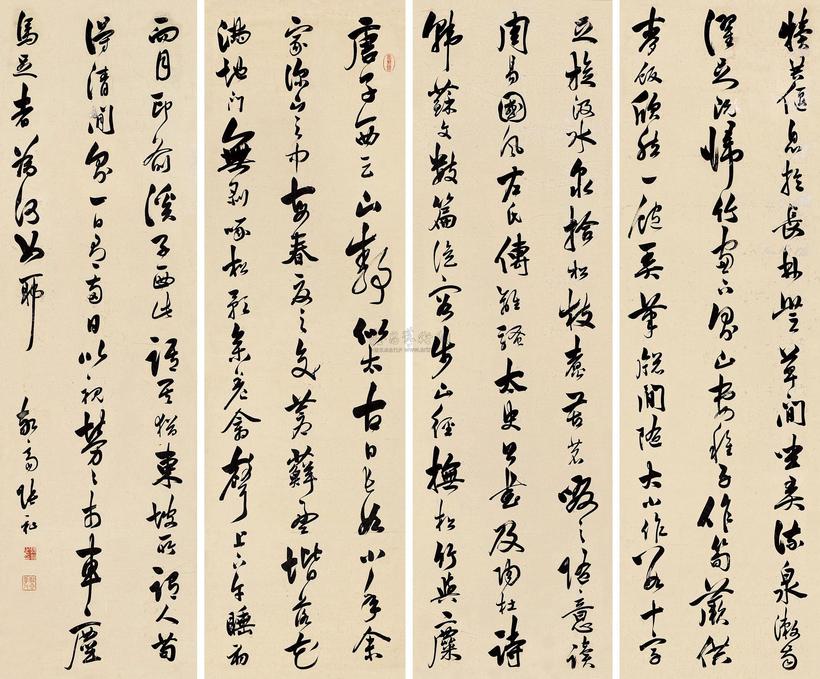 唐子西云山靜似太古日長如小年余
家深山之中每春夏之交蒼蘚盈堦落花
滿地門無剥啄松影參差禽聲上下午睡初
足旋汲水泉拾松枝煮苦茗啜之隨意讀
周易國風左氏傳離騷太史公書及陶杜詩
韓蘇文數篇從容步山徑撫松竹與麋
犢共偃息於長林豐草間坐弄流泉漱齒
濯足既歸竹窗下則山妻稚子作筍蕨供
麥飯欣然一飽弄筆窗間隨大小作數十字
而月印前溪子西此語其猶東坡所謂人苟
得清閒則一日爲兩日以視勞勞於車塵
馬足者爲何如耶